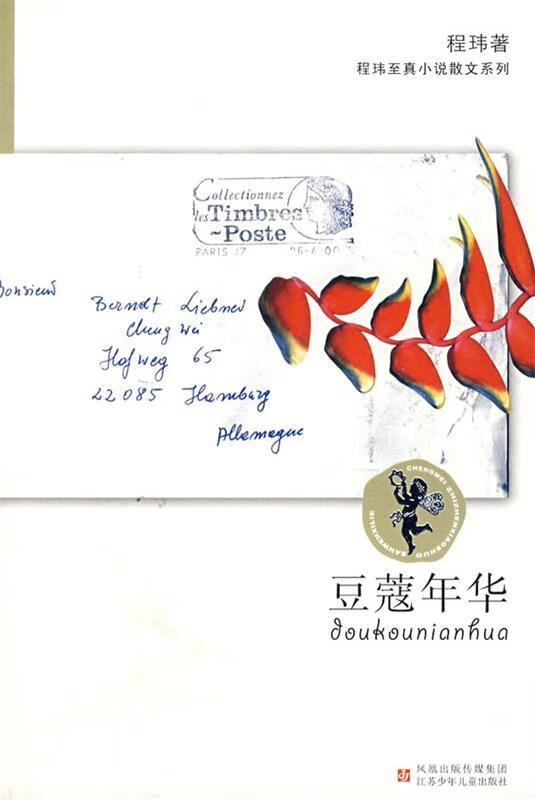 程玮著
程玮至真小说散文系列
Collectionnez
les Timbres
~Poste
PARIS 17 26-4 00
Monsieur
Berndt Liebner
Cheng Wei
Hofweg 65
22085 Hamburg
Allemagne
CHENGWEI ZHIZHENXIAOSHUO SANWENXILIE
豆蔻年华
doukounianhua
凤凰出版传媒集团
江苏少年儿童出版社